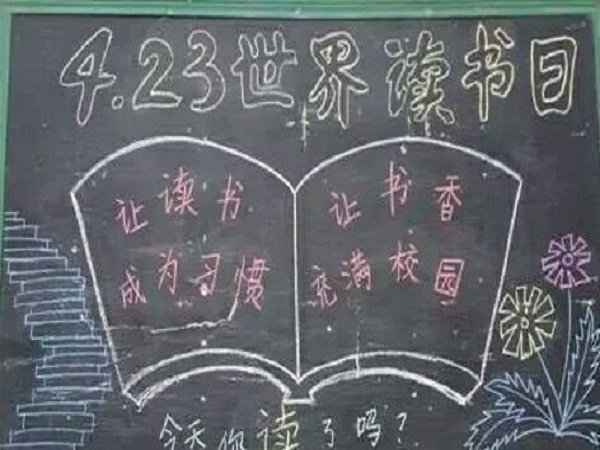 4.23世界读书日
让读书
成为习惯
让书香
充满校园
今天你读了吗?